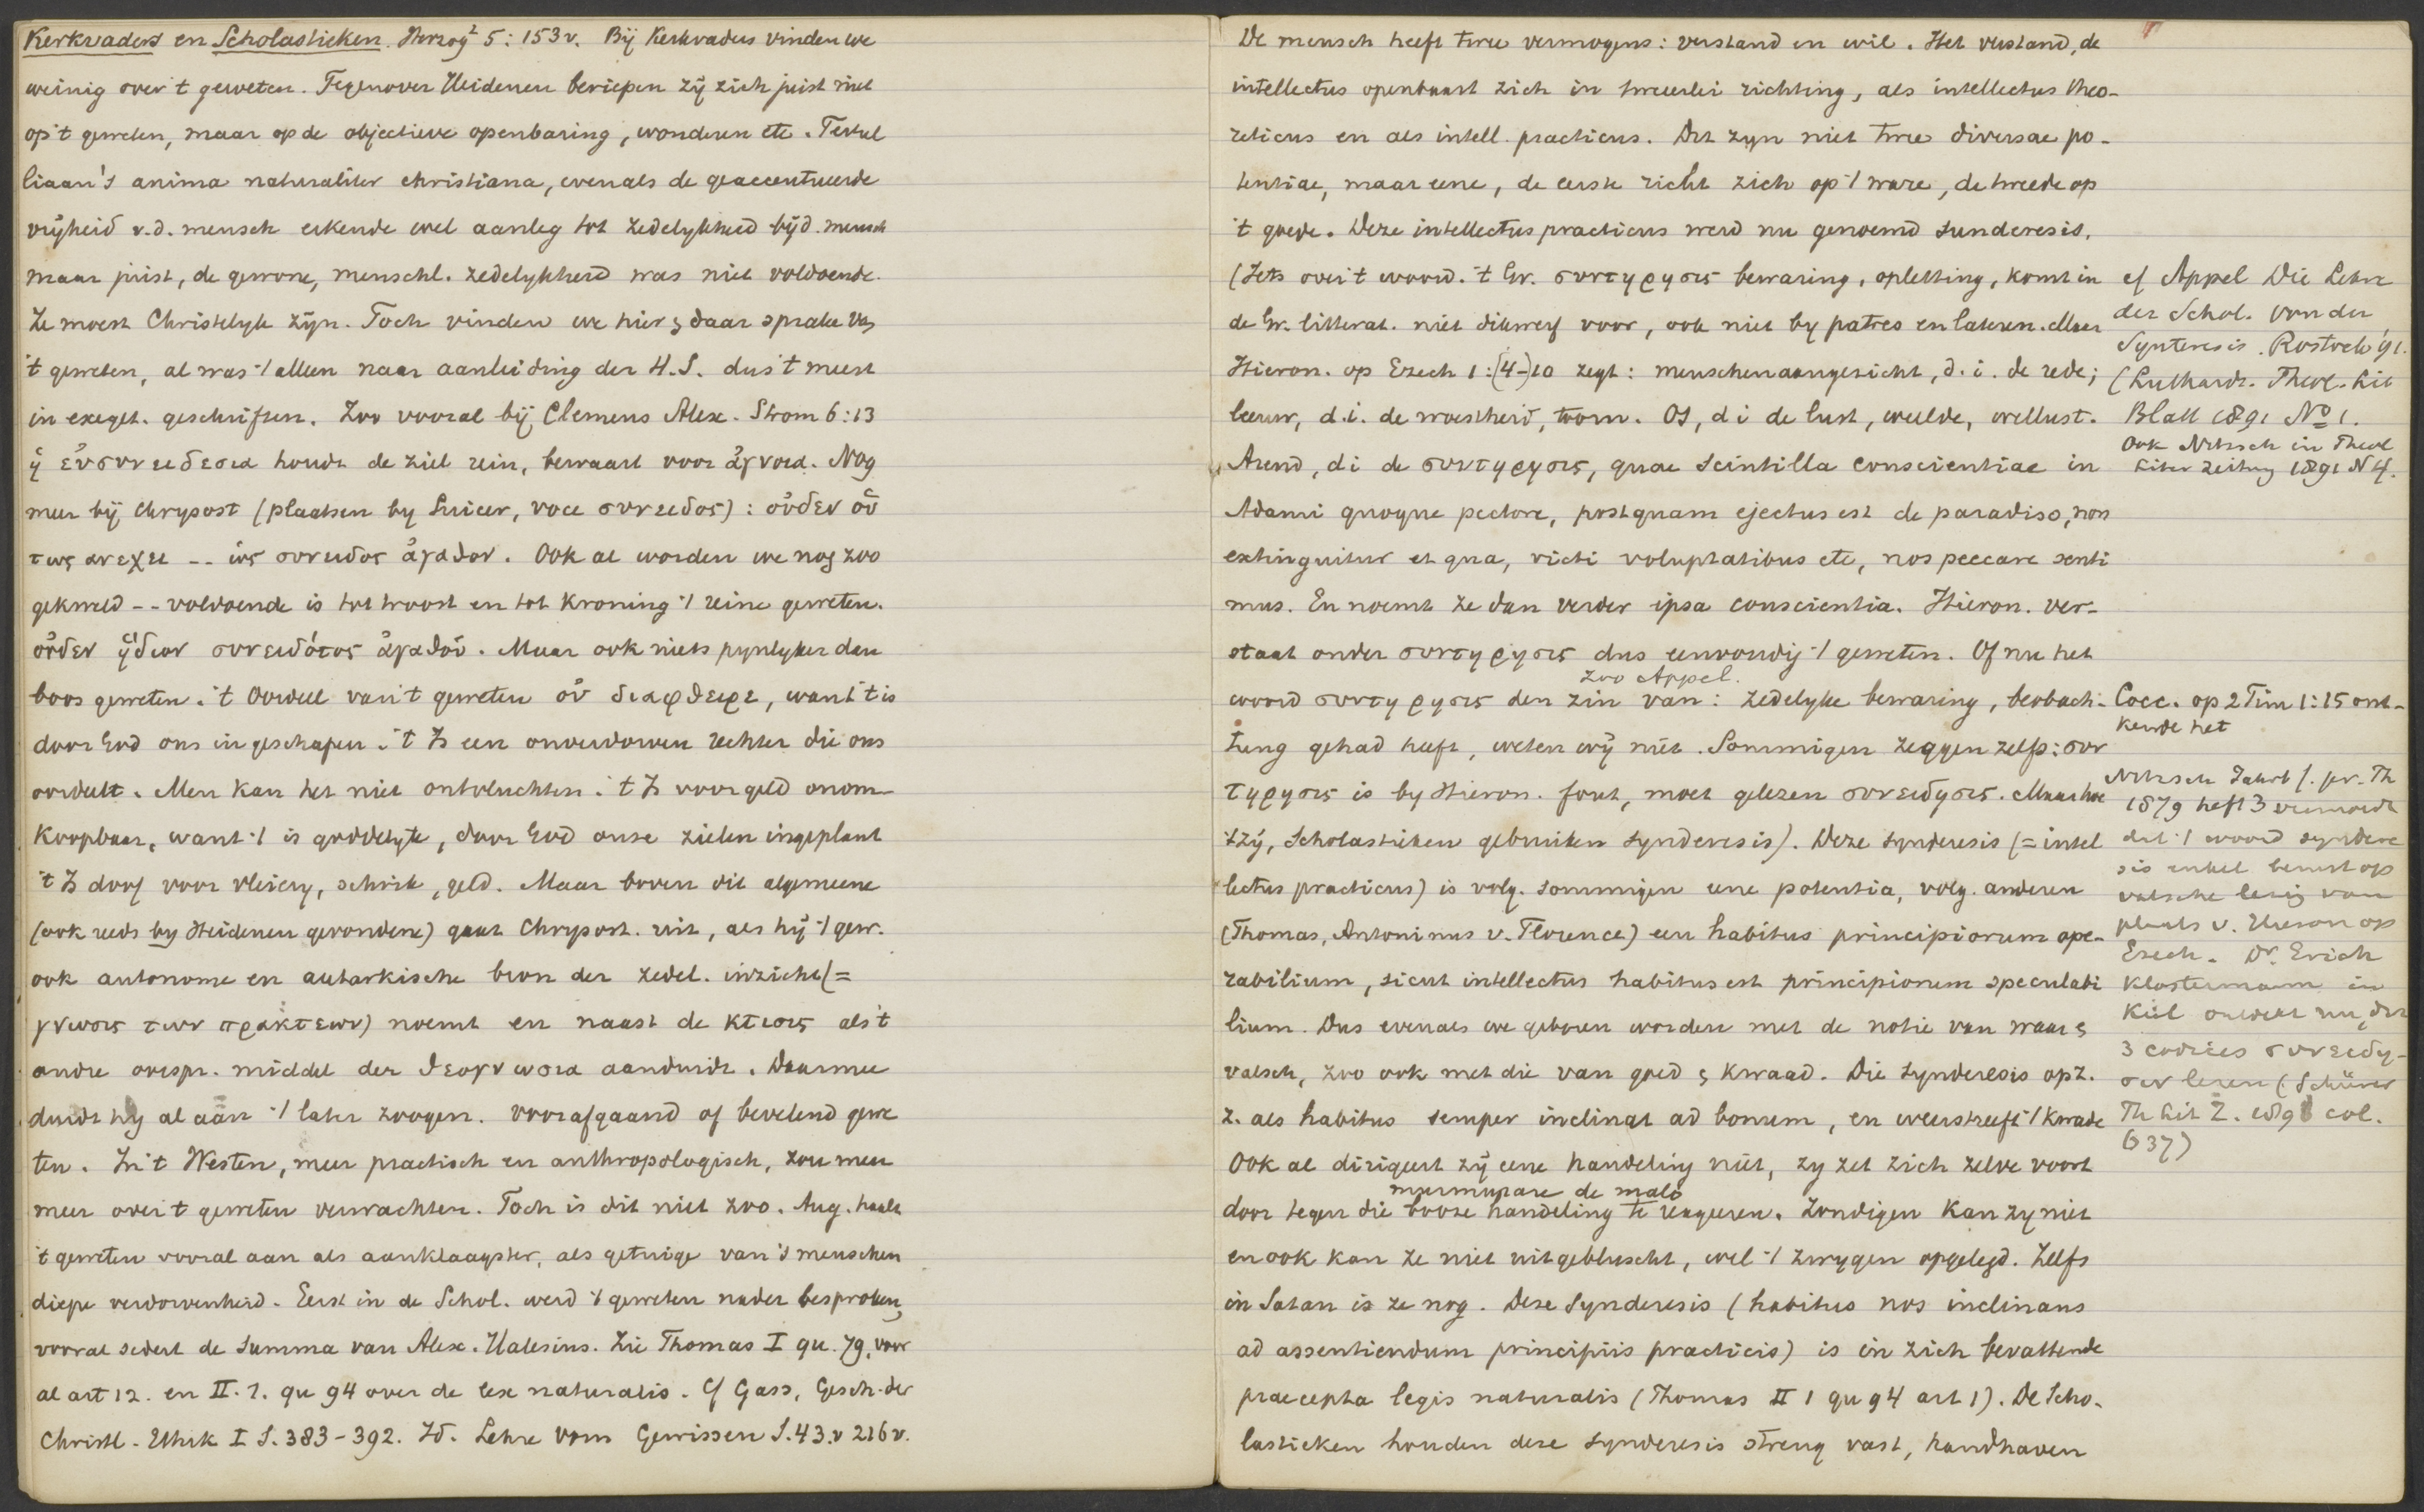 Kerkvaders en Scholastieken. Herzog² 5: 153 v. Bij Kerkvaders vinden we
weinig over 't geweten. Tegenover Heidenen beriepen zij zich juist niet
op 't geweten, maar op de objectieve openbaring, wonderen etc. Tertul
liaan's anima naturaliter christiana, evenals de geaccentueerde
vrijheid v.d. mensch erkende wel aanleg tot zedelykheid bij d. mensch
maar juist, de gewone, menschl. zedelykheid was niet voldoende.
Ze moest Christelyk zijn. Toch vinden we hier & daar sprake van
't geweten, al was 't alleen naar aanleiding der H.S. dus 't meest
in exeget. geschriften. Zoo vooral bij Clemens Alex. Strom 6:13
ἡ εὐσυνειδεσια houdt de ziel rein, bewaart voor ἄγνοια. Nog
meer bij Chrysost (plaatsen by Suicer, voce συνειδος): οὐδεν οὗ
τως ανεχει -- ὡς συνειδος ἀγαθον. Ook al worden we nog zoo
gekweld -- voldoende is tot troost en tot kroning 't reine geweten.
οὐδεν ἥδιον συνειδότος ἀγαθοῦ. Maar ook niets pynlyker dan
boos geweten. 't Oordeel van 't geweten οὐ διαφθειρε, want 't is
door God ons in geschapen. 't Is een onverdorven rechter die ons
oordeelt. Men kan het niet ontvluchten. 't Is voor geld onom-
koopbaar, want 't is goddelyk, door God onze zielen ingeplant
't Is doof voor vleiery, schrik, geld. Maar boven dit algemeene
(ook reeds by Heidenen gevondene) gaat Chrysost. uit, als hij 't gew.
ook autonome en autarkische bron der zedel. inzicht (=
γνωσις των πρακτεων) noemt en naast de κτισις als 't
andre oorspr. middel der θεογνωσια aanduidt. Daarmee
duidt hy al aan 't later zoogen. voorafgaand of bevelend gewe
ten. In 't Westen, meer practisch en anthropologisch, zou men
meer over 't geweten verwachten. Toch is dit niet zoo. Aug. haalt
't geweten vooral aan als aanklaagster, als getuige van 's menschen
diepe verdorvenheid. Eerst in de Schol. werd 't geweten nader besproken,
vooral sedert de Summa van Alex. Halesius. Zie Thomas I qu. 79, voor
al art 12. en II. 1. qu 94 over de lex naturalis. Cf Gass, Gesch. der
Christl. Ethik I S. 383-392. Id. Lehre vom Gewissen S. 43. v 216 v.
De mensch heeft twee vermogens: verstand en wil. Het verstand, de
intellectus openbaart zich in tweeerlei richting, als intellectus theo-
reticus en als intell. practicus. Dit zyn niet twee diversae po-
tentiae, maar eene, de eerste richt zich op 't ware, de tweede op
't goede. Deze intellectus practicus werd nu genoemd sunderesis.
(Iets over 't woord. 't Gr. συντηρησις bewaring, opletting, komt in
de Gr. litterat. niet dikwerf voor, ook niet by patres en lateren. Maar
Hieron. op Ezech 1: (4-)10 zegt: menschenaangezicht, d.i. de rede;
leeuw, d.i. de woestheid, toorn. Os, d i de lust, weelde, wellust.
Arend, d i de συντηρησις, quae scintilla conscientiae in
Adami quoque pectore, postquam ejectus est de paradiso, non
extinguitur et qua, victi voluptatibus etc, nos peccare senti
mus. En noemt ze dan verder ipsa conscientia. Hieron. ver-
staat onder συντηρησις dus eenvoudig 't geweten. Of nu het
zoo Appel.
woord συντηρησις den zin van: zedelyke bewaring, beobach-
tung gehad heeft, weten wij niet. Sommigen zeggen zelfs: συν
τηρησις is by Hieron. fout, moet gelezen συνειδησις. Maar hoe
't zij, Scholastieken gebruiken synderesis). Deze synderesis (= intel
lectus practicus) is volg. sommigen eene potentia, volg. anderen
(Thomas, Antoninus v. Florence) een habitus principiorum ope-
rabilium, sicut intellectus habitus est principiorum speculabi
lium. Dus evenals we geboren worden met de notie van waar &
valsch, zoo ook met die van goed & kwaad. Die synderesis op z.
z. als habitus semper inclinat ad bonum, en weerstreeft 't kwade
Ook al dirigeert zij eene handeling niet, zy zet zich zelve voort
murmurare de malo
door tegen die booze handeling te reageeren. Zondigen kan zy niet
en ook kan ze niet uitgebluscht, wel 't zwygen opgelegd. Zelfs
in Satan is ze nog. Deze Synderesis (habitus nos inclinans
ad assentiendum principiis practicis) is in zich bevattende
praecepta legis naturalis (Thomas II 1 qu 94 art 1). De Scho-
lastieken houden deze synderesis streng vast, handhaven
cf Appel Die Lehre
der Schol. von der
Synteresis. Rostock '91.
(Luthardt. Theol. Lit
Blatt 1891 No 1.
Ook Nitzsch in Theol
Liter Zeitung 1891 N 4.
Cocc. op 2 Tim 1:15 ont-
kende het
Nitzsch Jahrb f. pr. Th
1879 heft 3 vermoedt
dat 't woord syndere
sis enkel berust op
valsche lezing van
plaats v. Hieron op
Ezech. Dr. Erich
Klostermann in
Kiel ontdekt nu, dat
3 codices συνειδη-
σιν lezen (Schürer
Th Lit Z. 1896 col.
637)